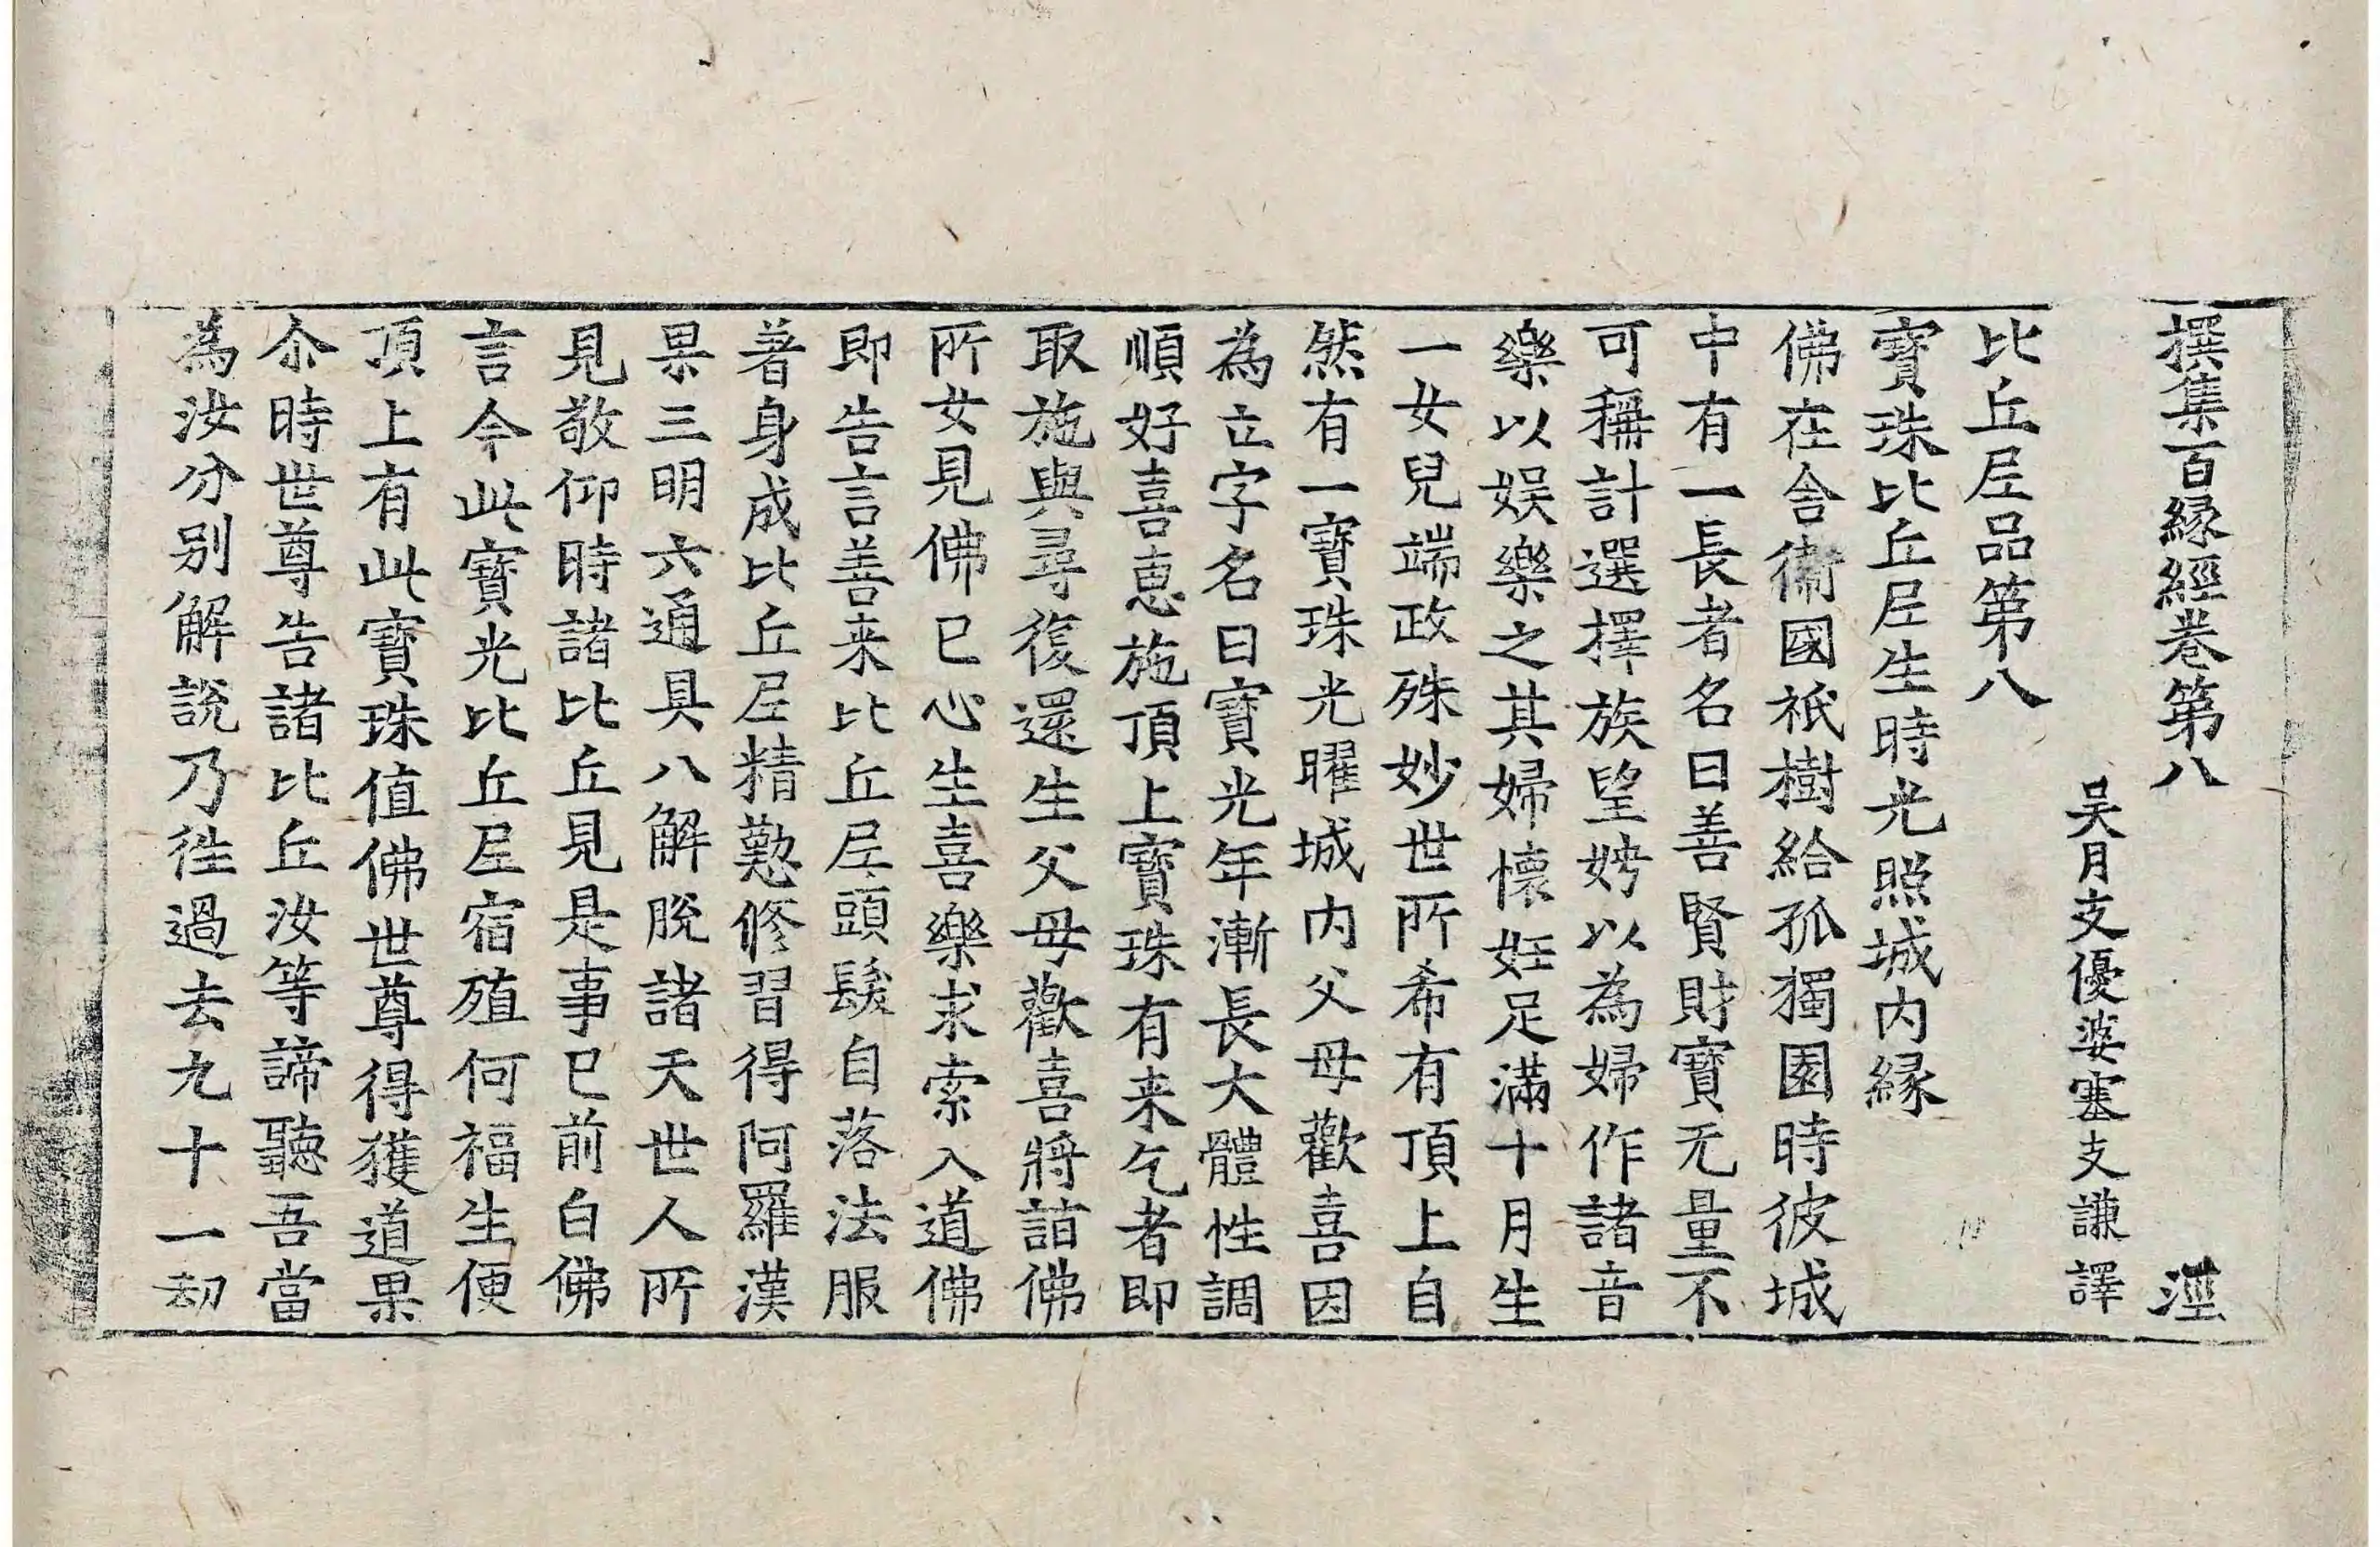 撰集百縁經卷第八 涇
吴月支優婆塞支謙譯
比丘𡰱品第八
寳珠比丘𡰱生時光照城内縁
佛在舍衞國祇樹給孤獨園時彼城
中有一長者名曰善賢財寳无量不
可稱計選擇族望娉以為婦作諸音
樂以娱樂之其婦懷妊足滿十月生
一女兒端政殊妙世所希有頂上自
然有一寳珠光曜城内父母歡喜因
為立字名曰寳光年漸長大體性調
順好喜恵施頂上寳珠有来乞者即
取施與尋復還生父母歡喜將詣佛
所女見佛已心生喜樂求索入道佛
即告言善来比丘𡰱頭髮自落法服
著身成比丘𡰱精懃修習得阿羅漢
果三明六通具八解脫諸天世人所
見敬仰時諸比丘見是事已前白佛
言今此寳光比丘𡰱宿殖何福生便
頂上有此寳珠值佛世尊得獲道果
尒時世尊告諸比丘汝等諦聽吾當
為汝分别解說乃徃過去九十一劫